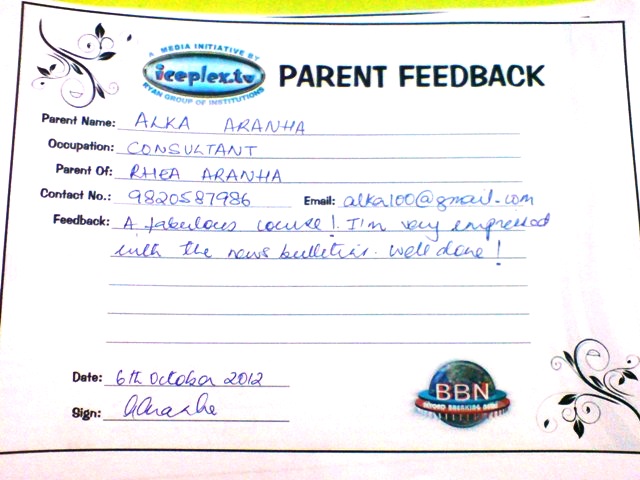 A MEDIA INITIATIVE BY
iceplex.tv
RYAN GROUP OF INSTITUTIONS
PARENT FEEDBACK
Parent Name: ALKA ARANHA
Occupation: CONSULTANT
Parent Of: RHEA ARANHA
Contact No.: 9820587986 Email: alka100@gmail.com
Feedback: A fabulous course! I'm very impressed
with the news bulletins. Well done!
Date: 6th October 2012
BBN
BEYOND BREAKING NEWS
Sign: AAranha